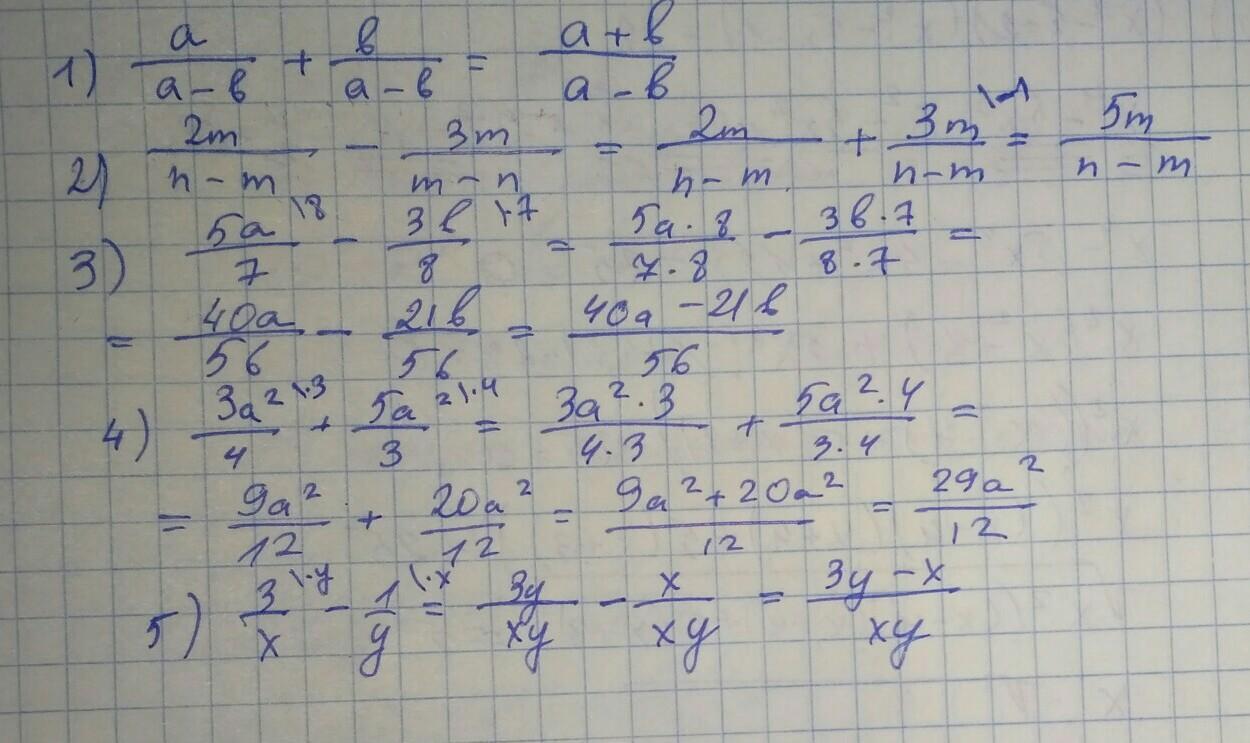 1) a/(a-в) + в/(a-в) = (a+в)/(a-в)
2) 2m/(n-m) - 3m/(m-n) = 2m/(n-m) + 3m\-1/(n-m) = 5m/(n-m)
3) 5a\8/7 - 3в\·7/8 = 5a·8/7·8 - 3в·7/8·7 =
= 40a/56 - 21в/56 = (40a-21в)/56
4) 3a²\·3/4 + 5a²\·4/3 = 3a²·3/4·3 + 5a²·4/3·4 =
= 9a²/12 + 20a²/12 = (9a²+20a²)/12 = 29a²/12
5) 3\·y/x - 1\·x/y = 3y/xy - x/xy = (3y-x)/xy